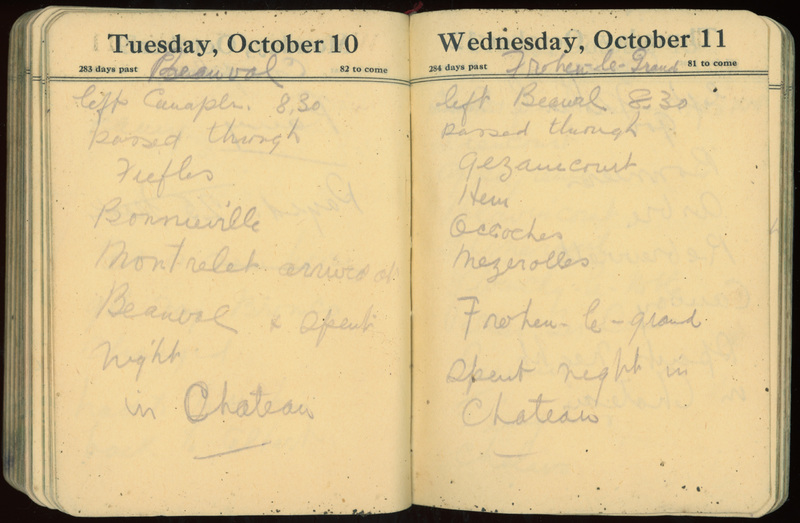 Tuesday, October 10
283 days past
82 to come
Beauval
left Canaples. 8,30
passed through
Fieffes
Bonnieville
Montrelet arrived at
Beauval & spent
night
in Chateau
Wednesday, October 11
284 days past
81 to come
Frohen-le-Grand
left Beauvl 8.30
passed through
Gezaincourt
Hem
Occoches
Mezerolles
Frohen-le-grand
spent night in
Chateau